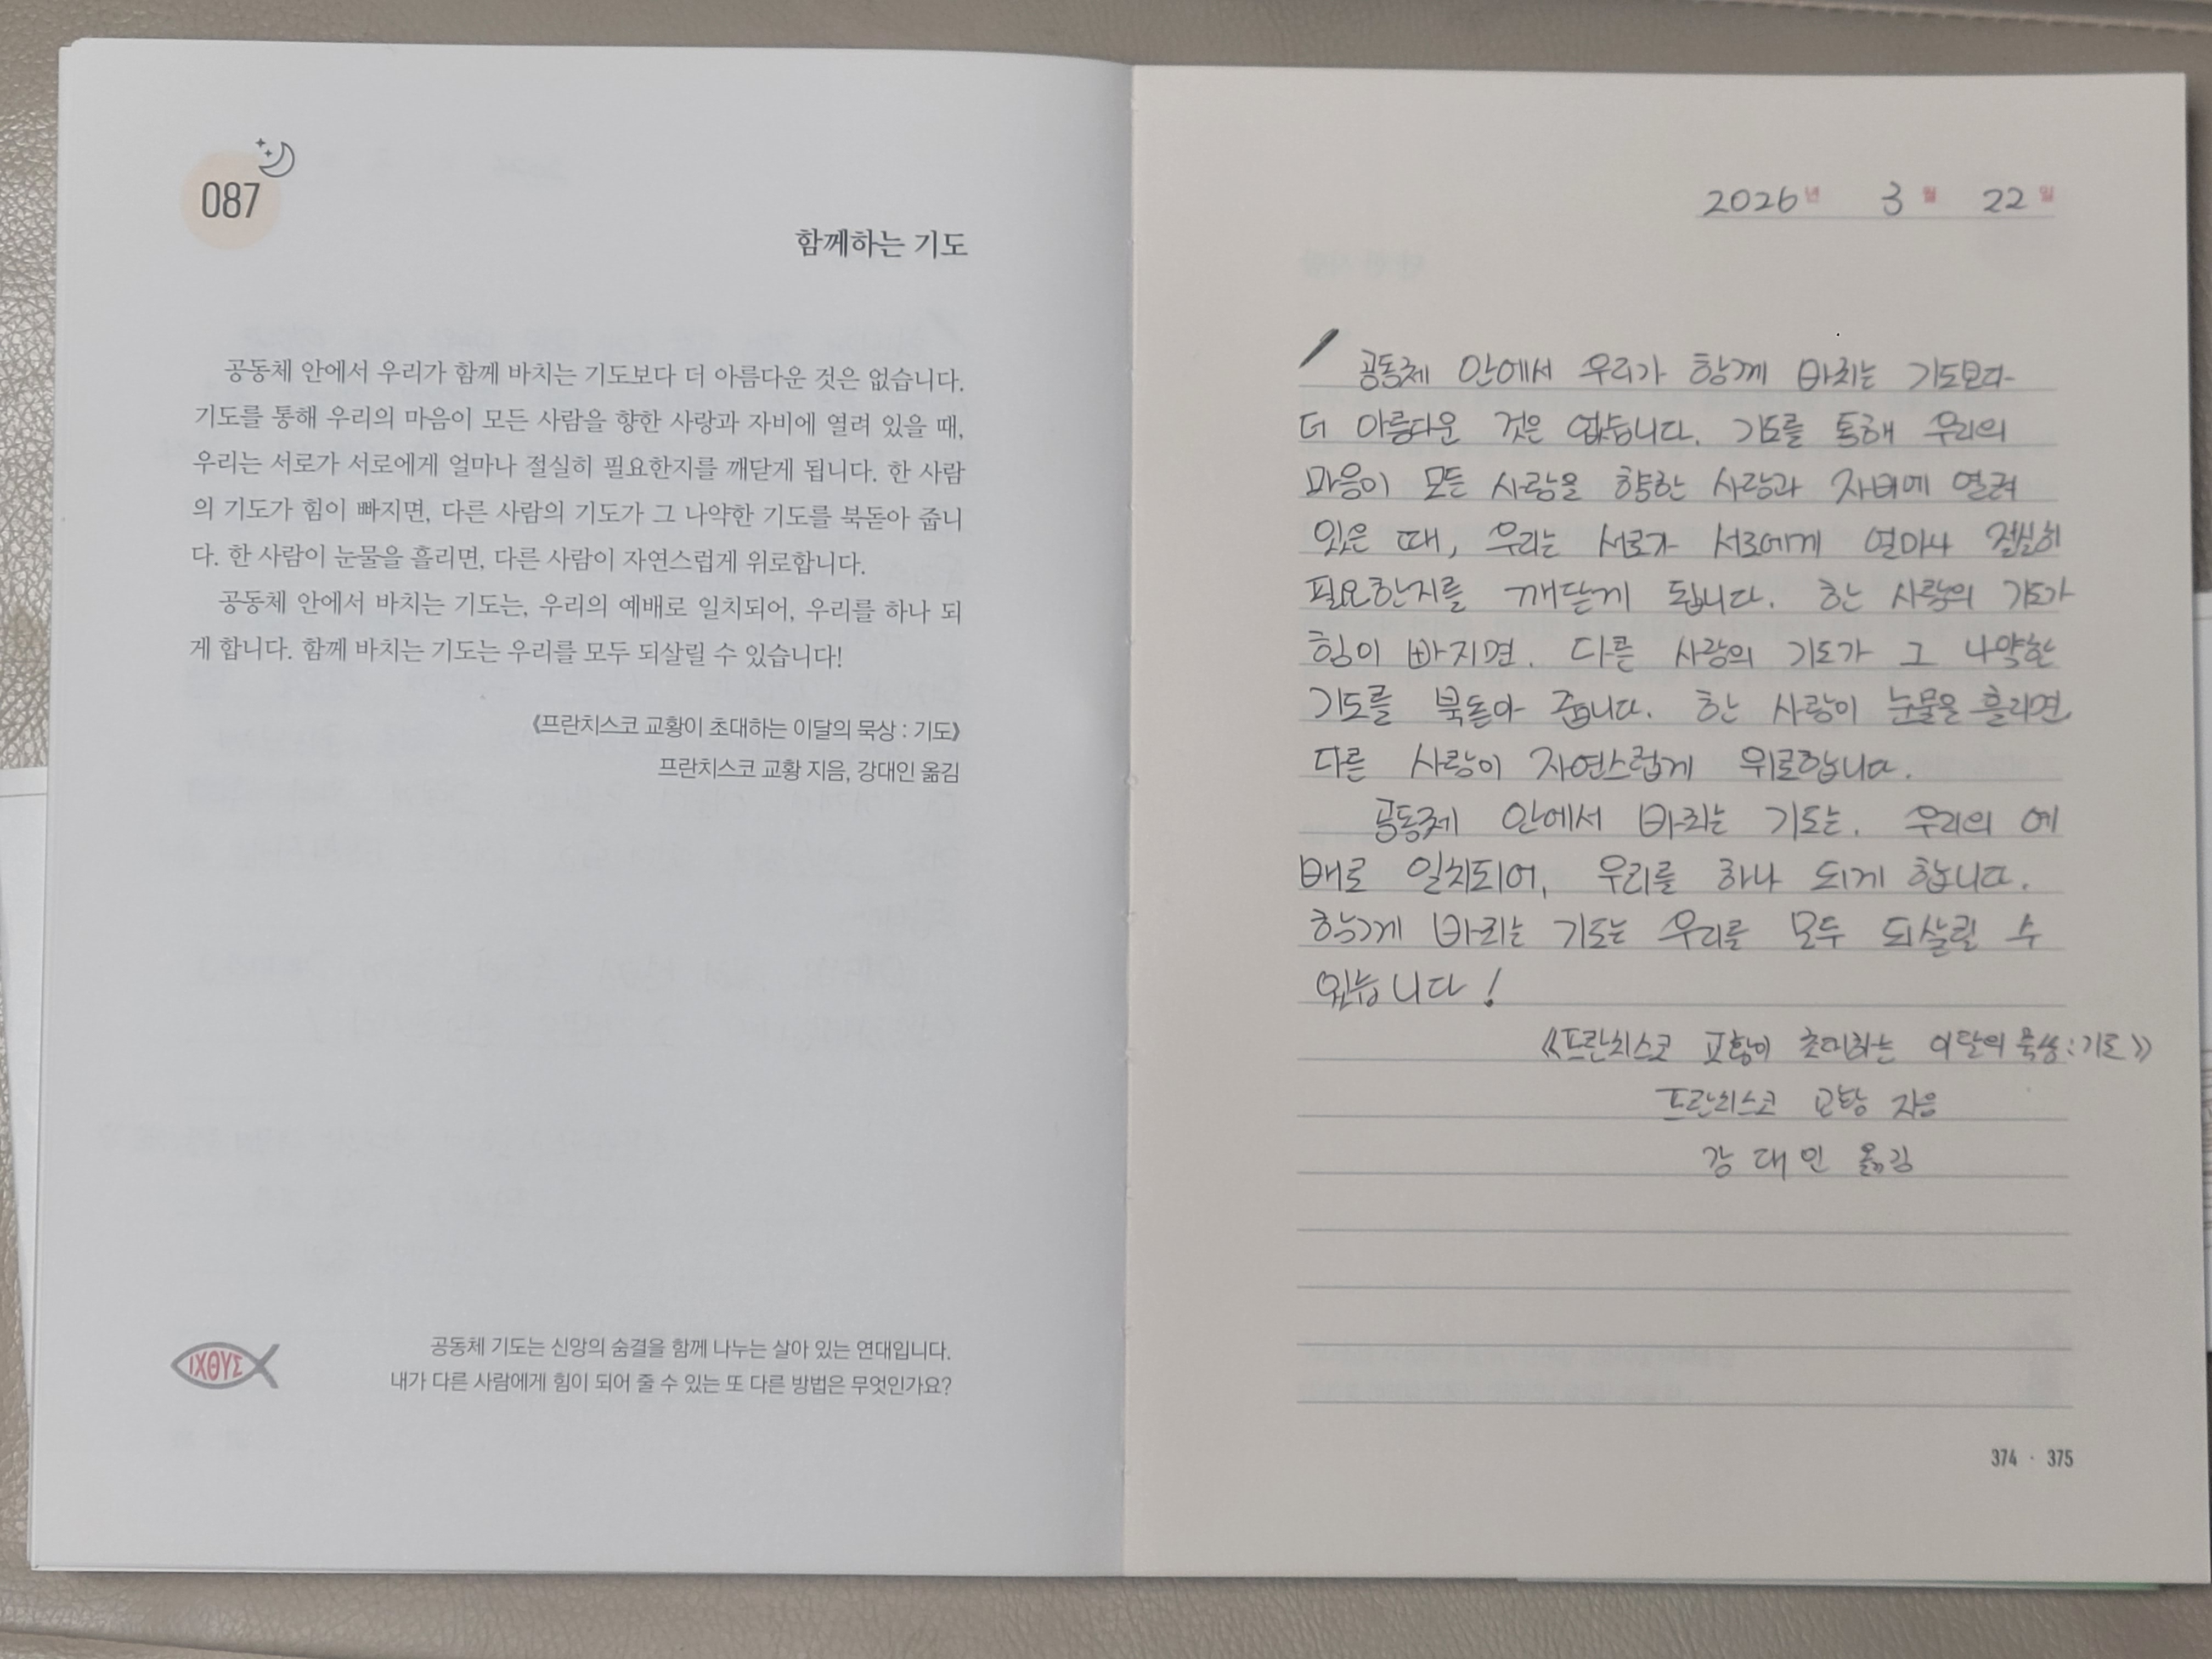 087
함께하는 기도
공동체 안에서 우리가 함께 바치는 기도보다 더 아름다운 것은 없습니다.
기도를 통해 우리의 마음이 모든 사람을 향한 사랑과 자비에 열려 있을 때,
우리는 서로가 서로에게 얼마나 절실히 필요한지를 깨닫게 됩니다. 한 사람
의 기도가 힘이 빠지면, 다른 사람의 기도가 그 나약한 기도를 북돋아 줍니
다. 한 사람이 눈물을 흘리면, 다른 사람이 자연스럽게 위로합니다.
공동체 안에서 바치는 기도는, 우리의 예배로 일치되어, 우리를 하나 되
게 합니다. 함께 바치는 기도는 우리를 모두 되살릴 수 있습니다!
《프란치스코 교황이 초대하는 이달의 묵상 : 기도》
프란치스코 교황 지음, 강대인 옮김
ΙΧΘΥΣ
공동체 기도는 신앙의 숨결을 함께 나누는 살아 있는 연대입니다.
내가 다른 사람에게 힘이 되어 줄 수 있는 또 다른 방법은 무엇인가요?
2026년 3월 22일
공동체 안에서 우리가 함께 바치는 기도보다
더 아름다운 것은 없습니다. 기도를 통해 우리의
마음이 모든 사람을 향한 사랑과 자비에 열려
있을 때, 우리는 서로가 서로에게 얼마나 절실히
필요한지를 깨닫게 됩니다. 한 사람의 기도가
힘이 빠지면. 다른 사람의 기도가 그 나약한
기도를 북돋아 줍니다. 한 사람이 눈물을 흘리면
다른 사람이 자연스럽게 위로합니다.
공동체 안에서 바치는 기도는. 우리의 예
배로 일치되어, 우리를 하나 되게 합니다.
함께 바치는 기도는 우리를 모두 되살릴 수
있습니다!
《프란치스코 교황이 초대하는 이달의 묵상:기도》
프란치스코 교황 지음
강대인 옮김
374 · 375